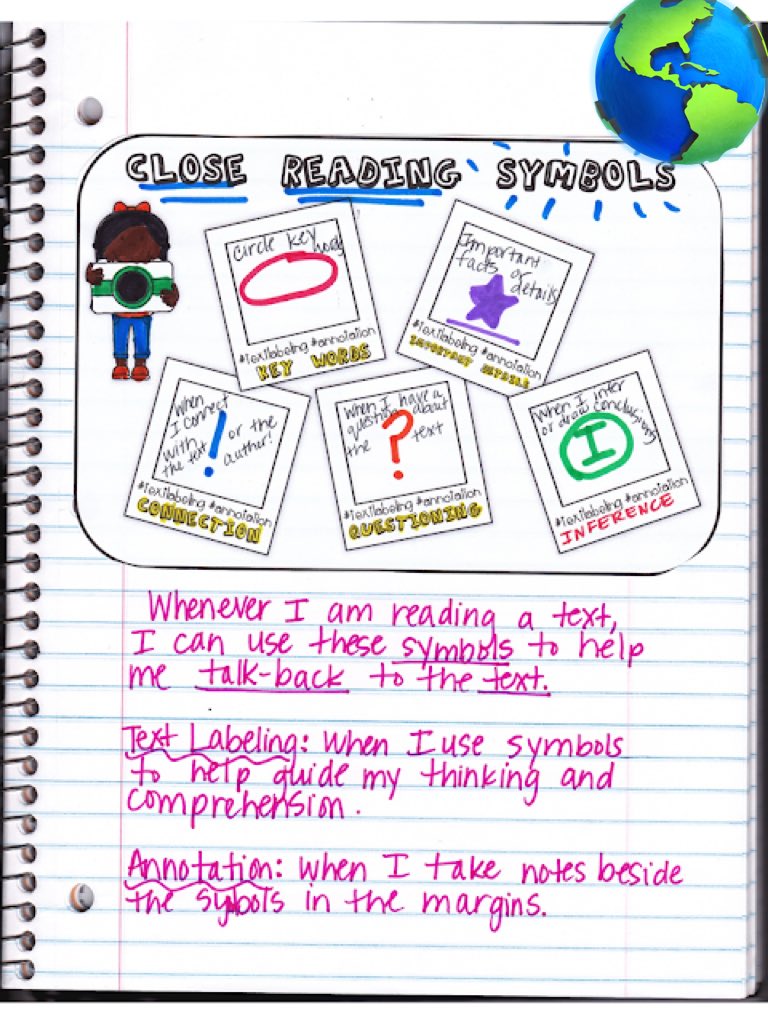 CLOSE READING SYMBOLS
Circle key
words
#textlabeling #annotation
KEY WORDS
Important
facts or
details
#textlabeling #annotation
IMPORTANT DETAILS
When
I connect
with
the text or the
author!
!
#textlabeling #annotation
CONNECTION
When I have a
question about
the text
?
#textlabeling #annotation
QUESTIONING
When I infer
or draw conclusions
I
#textlabeling #annotation
INFERENCE
Whenever I am reading a text,
I can use these symbols to help
me talk-back to the text.
Text Labeling: When I use symbols
to help guide my thinking and
comprehension.
Annotation: When I take notes beside
the sybols in the margins.